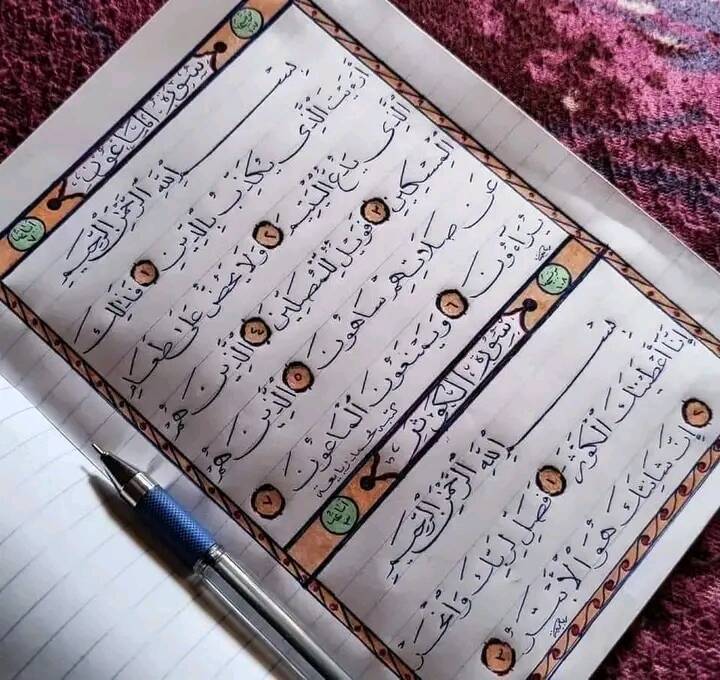 سورة الماعون
بِسْمِ اللّٰهِ الرَّحْمٰنِ الرَّحِيمِ
أَرَءَيْتَ الَّذِي يُكَذِّبُ بِالدِّينِ ١ فَذَٰلِكَ
الَّذِي يَدُعُّ الْيَتِيمَ ٢ وَلَا يَحُضُّ عَلَىٰ طَعَامِ
الْمِسْكِينِ ٣ فَوَيْلٌ لِّلْمُصَلِّينَ ٤ الَّذِينَ هُمْ
عَن صَلَاتِهِمْ سَاهُونَ ٥ الَّذِينَ هُمْ
يُرَاءُونَ ٦ وَيَمْنَعُونَ الْمَاعُونَ ٧
سورة الكوثر
بِسْمِ اللّٰهِ الرَّحْمٰنِ الرَّحِيمِ
إِنَّا أَعْطَيْنَٰكَ الْكَوْثَرَ ١ فَصَلِّ لِرَبِّكَ وَانْحَرْ
٢ إِنَّ شَانِئَكَ هُوَ الْأَبْتَرُ ٣